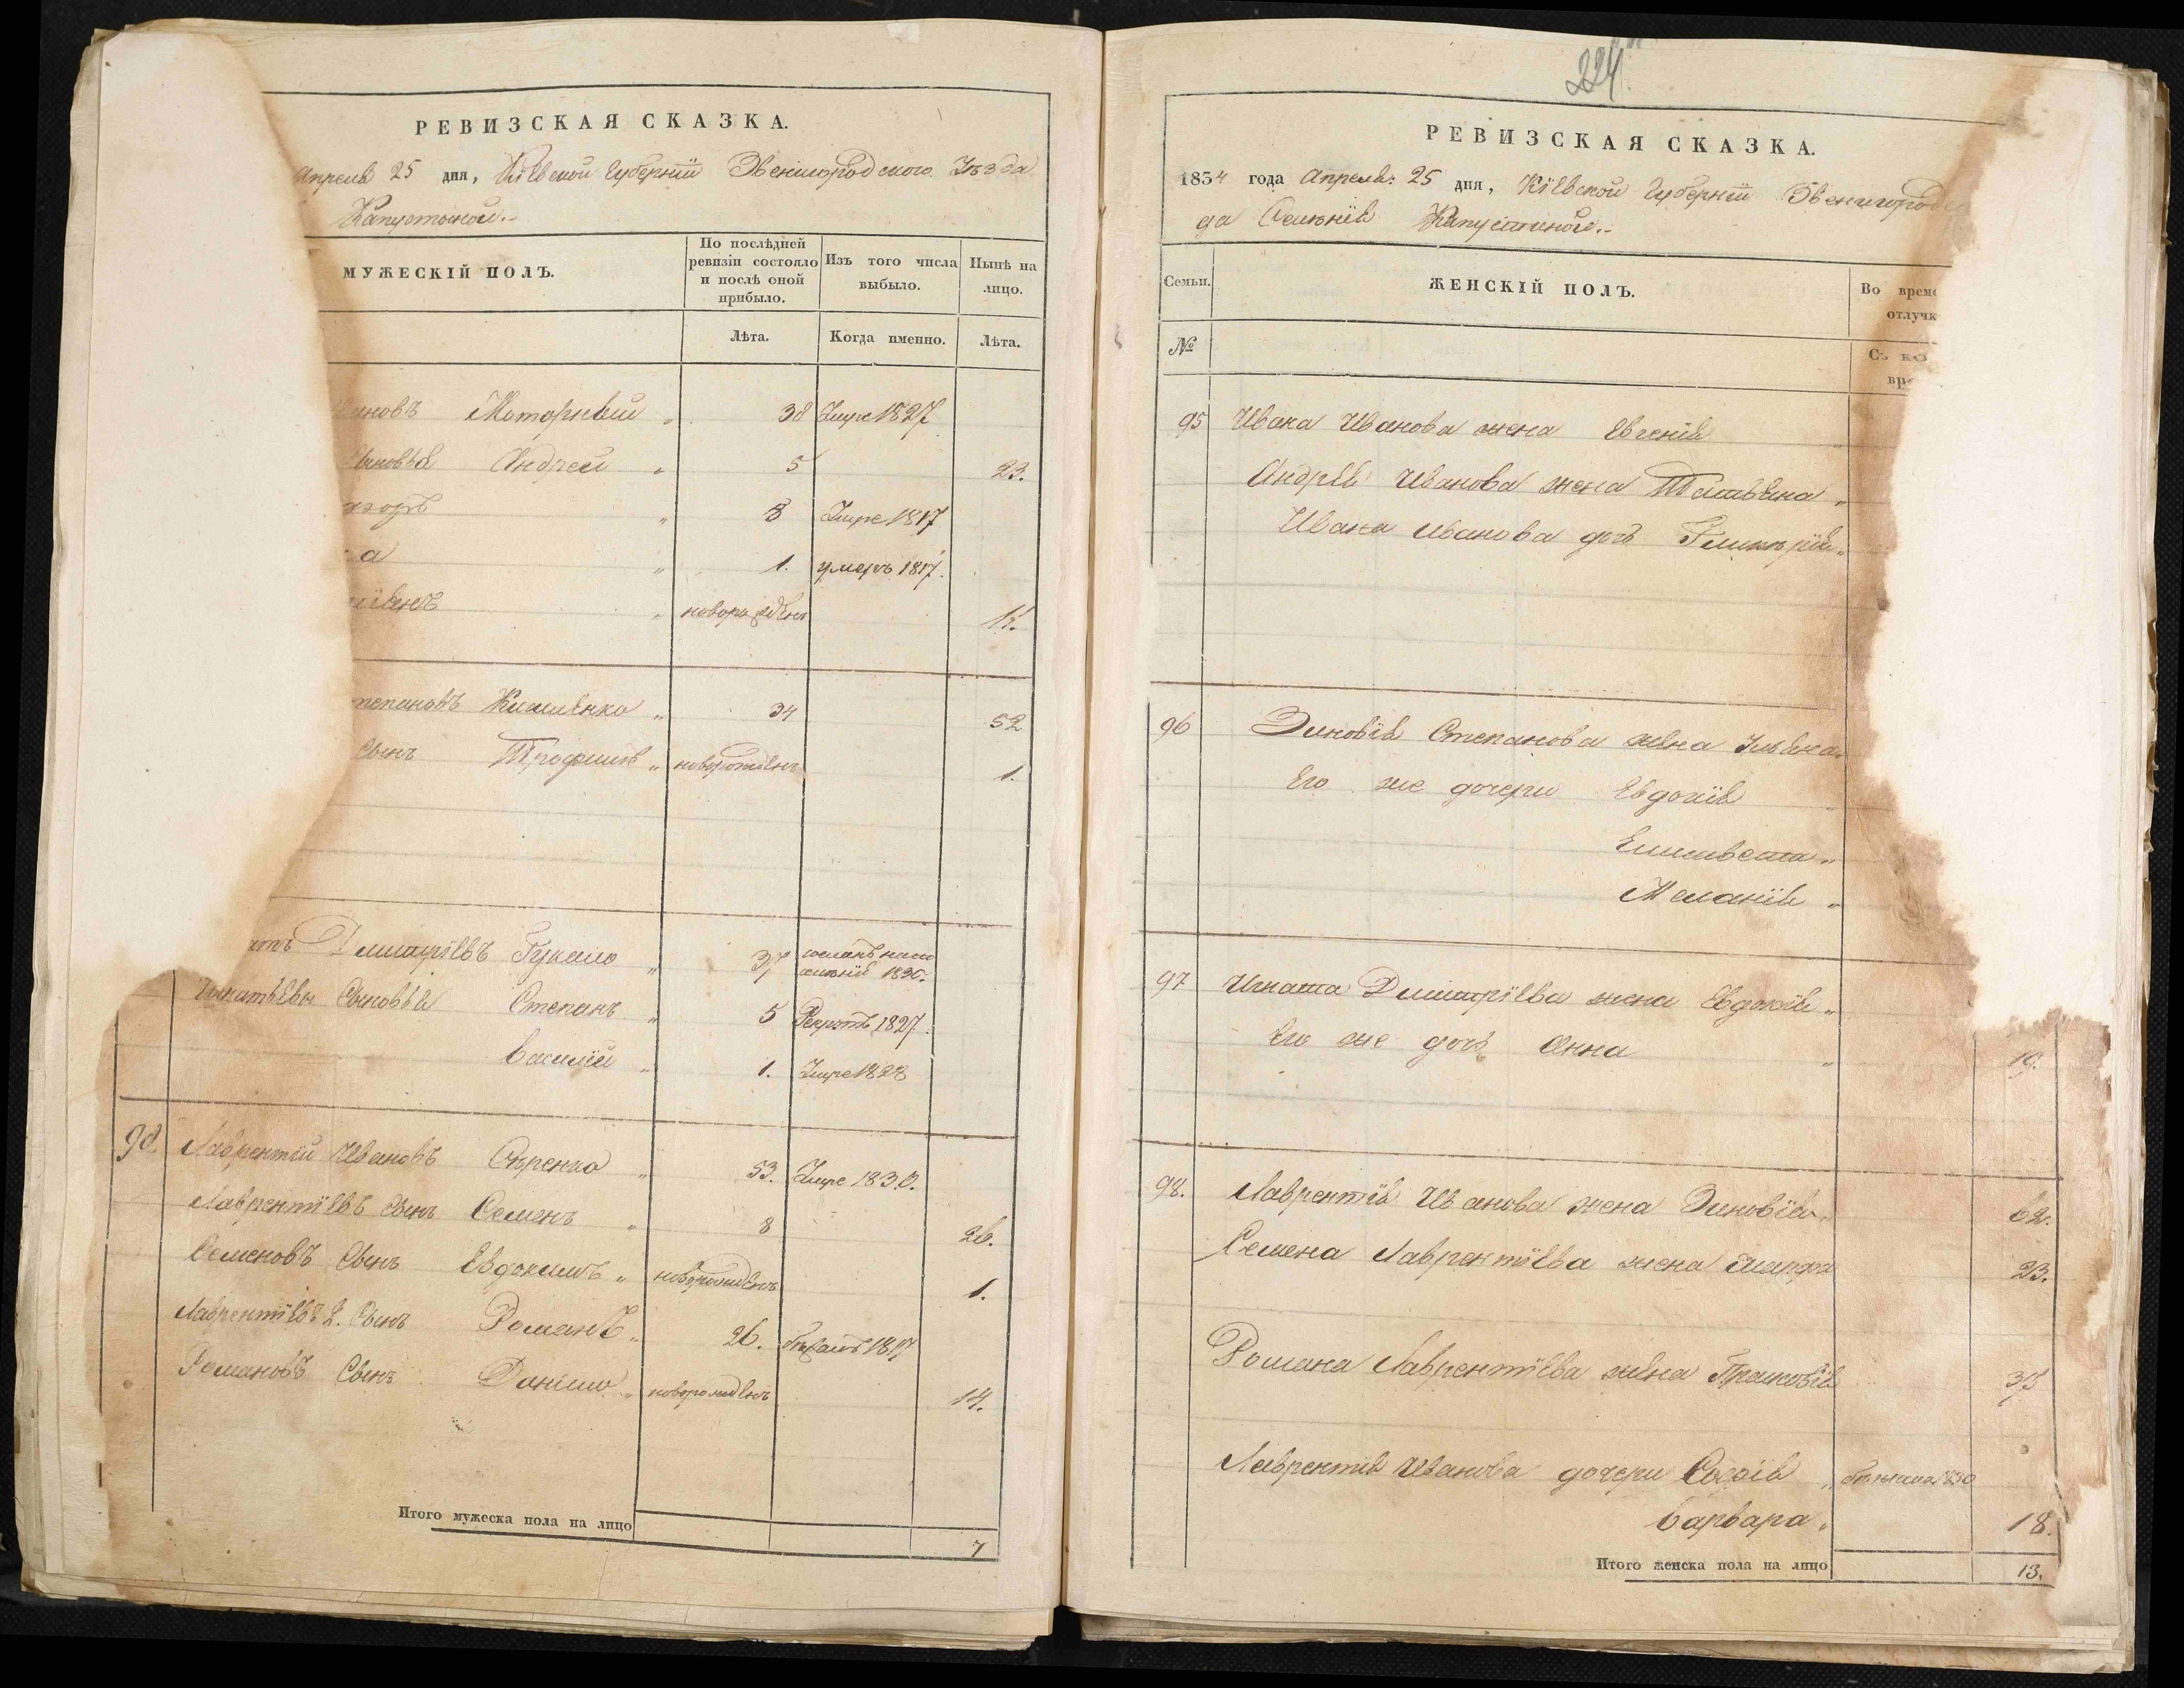 РЕВИЗСКАЯ СКАЗКА.
Апреля 25 дня, Кіевской Губерніи Звенигородского Уезда
Капустиной.
МУЖЕСКІЙ ПОЛЪ.
По послѣдней ревизіи состояло и послѣ оной прибыло.
Изъ того числа выбыло.
Нынѣ на лицо.
Лѣта.
Когда именно.
Лѣта.
Моторный „ 38 Умре 1827
Андрей „ 5 23.
„ 8 Умре 1817
„ 1. умеръ 1817.
„ новорожденъ
„ 34 52
Сынъ Трофимъ „ новорожденъ 1.
Димитріевъ „ 37 1830.
Игнатьевы Сыновья Степанъ „ 5 Рекрутъ 1827.
Василій „ 1. Умре 1828
98. Лаврентій Ивановъ „ 53. Умре 1830.
Лаврентіевъ Сынъ Семенъ „ 8 26.
Семеновъ Сынъ Евдокимъ „ новорожденъ 1.
Лаврентіевъ 2. Сынъ Романъ „ 26. бежалъ 1817
Романовъ Сынъ Данило „ новорожденъ 14.
Итого мужеска пола на лицо 7
224
РЕВИЗСКАЯ СКАЗКА.
1834 года Апреля 25 дня, Кіевской Губерніи
да Селенія Капустиной.
Семьи.
ЖЕНСКІЙ ПОЛЪ.
№
95 Ивана Иванова жена Евгенія „
Андрея Иванова жена Татьяна „
Ивана Иванова дочь Гликерія „
96 Зиновія Степанова жена Ульяна „
Его же дочери Евдокія „
Елисавета „
Меланія „
97 Игната Димитріева жена Евдокія „
Его же дочь Анна „ 19.
98. Лаврентія Иванова жена Зиновія „ 62.
Семена Лаврентіева жена Марфа 23.
Романа Лаврентіева жена Прасковія 37
Лаврентія Иванова дочери Софія „
Варвара „ 18.
Итого женска пола на лицо 13.